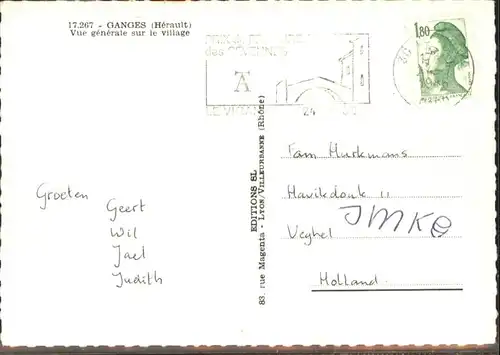 17.267 - GANGES (Hérault)
Vue générale sur le village
des CEVENNES
A
LE VIGAN
24
1,80
Fam Hurkmans
Havikdonk 11
IMKE
Veghel
Holland
Groeten
Geert
Wil
Jael
Judith
EDITIONS SL
83, rue Magenta - LYON/VILLEURBANNE (Rhône)